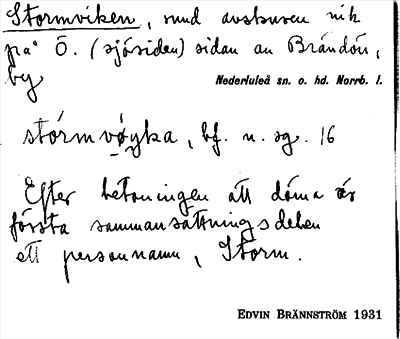 Stormviken, sund avskuren vik
på Ö. (sjösiden) sidan av Brändön,
by Nederluleå sn. o. hd. Norrb. l.
stórmvøyka, bf. n. sg. 16
Efter betoningen att döma är
första sammansättningsdelen
ett personnamn, Storm.
EDVIN BRÄNNSTRÖM 1931